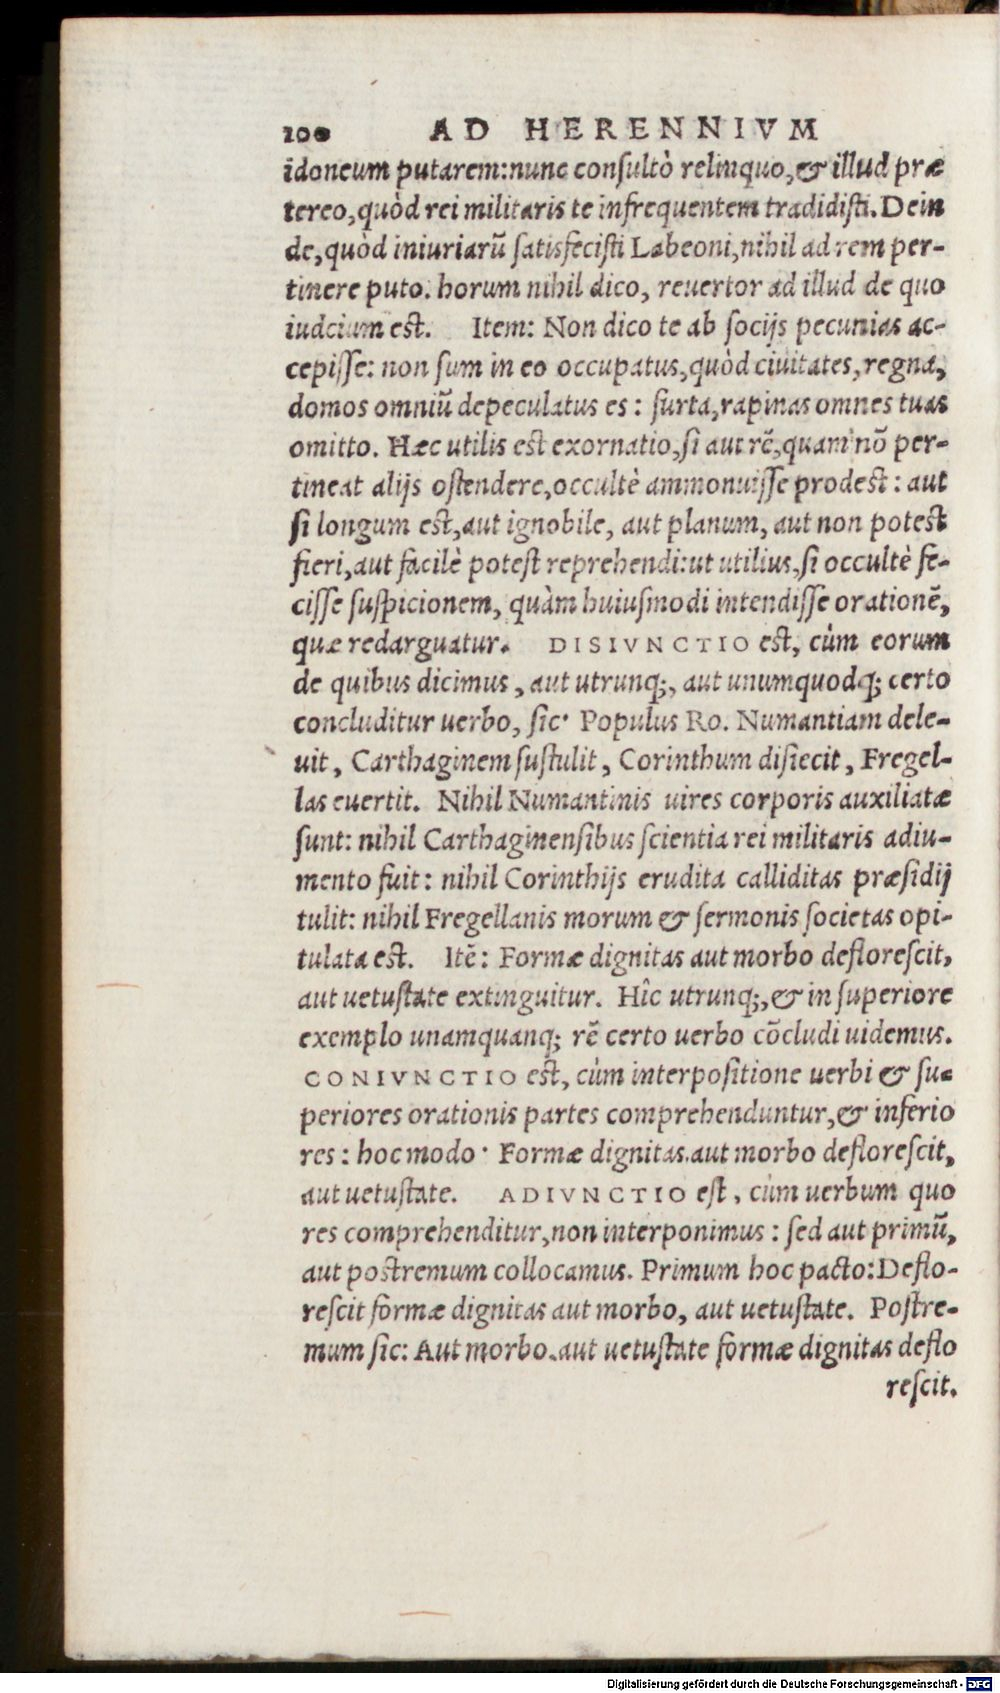 100 AD HERENNIVM
idoneum putarem: nunc consultò relinquo, & illud præ
tereo, quòd rei militaris te infrequentem tradidisti. Dein
de, quòd iniuriarũ satisfecisti Labeoni, nihil ad rem per-
tinere puto. horum nihil dico, reuertor ad illud de quo
iudcium est. Item: Non dico te ab socijs pecunias ac-
cepisse: non sum in eo occupatus, quòd ciuitates, regna,
domos omniũ depeculatus es: furta, rapinas omnes tuas
omitto. Hæc utilis est exornatio, si aut rẽ, quam nõ per-
tineat alijs ostendere, occultè ammonuisse prodest: aut
si longum est, aut ignobile, aut planum, aut non potest
fieri, aut facilè potest reprehendi: ut utilius, si occultè fe-
cisse suspicionem, quàm huiusmodi intendisse orationẽ,
quæ redarguatur. DISIVNCTIO est, cùm eorum
de quibus dicimus, aut utrunq;, aut unumquodq; certo
concluditur uerbo, sic· Populus Ro. Numantiam dele-
uit, Carthaginem sustulit, Corinthum disiecit, Fregel-
las euertit. Nihil Numantinis uires corporis auxiliatæ
sunt: nihil Carthaginensibus scientia rei militaris adiu-
mento fuit: nihil Corinthijs erudita calliditas præsidij
tulit: nihil Fregellanis morum & sermonis societas opi-
tulata est. Itẽ: Formæ dignitas aut morbo deflorescit,
aut uetustate extinguitur. Hîc utrunq;, & in superiore
exemplo unamquanq; rẽ certo uerbo cõcludi uidemus.
CONIVNCTIO est, cùm interpositione uerbi & su-
periores orationis partes comprehenduntur, & inferio
res: hoc modo· Formæ dignitas.aut morbo deflorescit,
aut uetustate. ADIVNCTIO est, cùm uerbum quo
res comprehenditur, non interponimus: sed aut primũ,
aut postremum collocamus. Primum hoc pacto: Deflo-
rescit formæ dignitas aut morbo, aut uetustate. Postre-
mum sic: Aut morbo.aut uetustate formæ dignitas deflo
rescit.
Digitalisierung gefördert durch die Deutsche Forschungsgemeinschaft - DFG